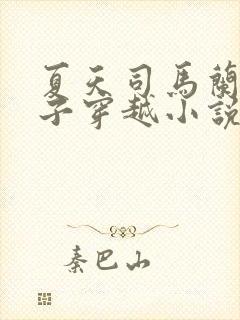 夏天司馬蘭
子穿越小說
秦巴山